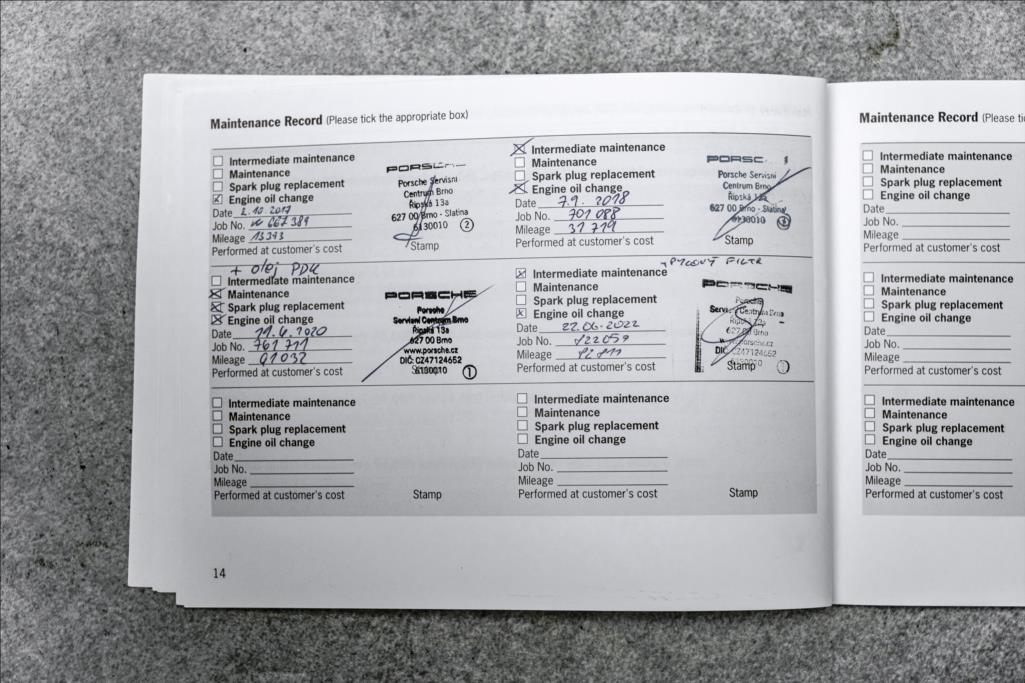 Maintenance Record (Please tick the appropriate box)
Intermediate maintenance
Maintenance
Spark plug replacement
Engine oil change
Date 2.10 2017
Job No. W 667 389
Mileage 13343
Performed at customer's cost
PORSCHE
Porsche Servisní
Centrum Brno
Řipská 13a
627 00 Brno - Slatina
6130010 2
Stamp
Intermediate maintenance
Maintenance
Spark plug replacement
Engine oil change
Date 7.9. 2018
Job No. 701 088
Mileage 31 719
Performed at customer's cost
PORSC
Porsche Servisní
Centrum Brno
Řipská 13a
627 00 Brno - Slatina
6130010
Stamp
+ olej PDK
Intermediate maintenance
Maintenance
Spark plug replacement
Engine oil change
Date 2020
Job No. 761 711
Mileage 61032
Performed at customer's cost
PORSCHE
Porsche
Servisní Centrum Brno
Řipská 13a
627 00 Brno
www.porsche.cz
DIČ: CZ47124652
6130010 1
Stamp
+ PYLOVÝ FILTR
Intermediate maintenance
Maintenance
Spark plug replacement
Engine oil change
Date 22.06.2022
Job No. 822059
Mileage
Performed at customer's cost
PORSCHE
Porsche
Servisní Centrum Brno
Řipská 13a
627 00 Brno
DIČ: CZ47124652
6130010
Stamp
Intermediate maintenance
Maintenance
Spark plug replacement
Engine oil change
Date
Job No.
Mileage
Performed at customer's cost
Stamp
Intermediate maintenance
Maintenance
Spark plug replacement
Engine oil change
Date
Job No.
Mileage
Performed at customer's cost
Stamp
14
Maintenance Record (Please
Intermediate maintenance
Maintenance
Spark plug replacement
Engine oil change
Date
Job No.
Mileage
Performed at customer's cost
Intermediate maintenance
Maintenance
Spark plug replacement
Engine oil change
Date
Job No.
Mileage
Performed at customer's cost
Intermediate maintenance
Maintenance
Spark plug replacement
Engine oil change
Date
Job No.
Mileage
Performed at customer's cost